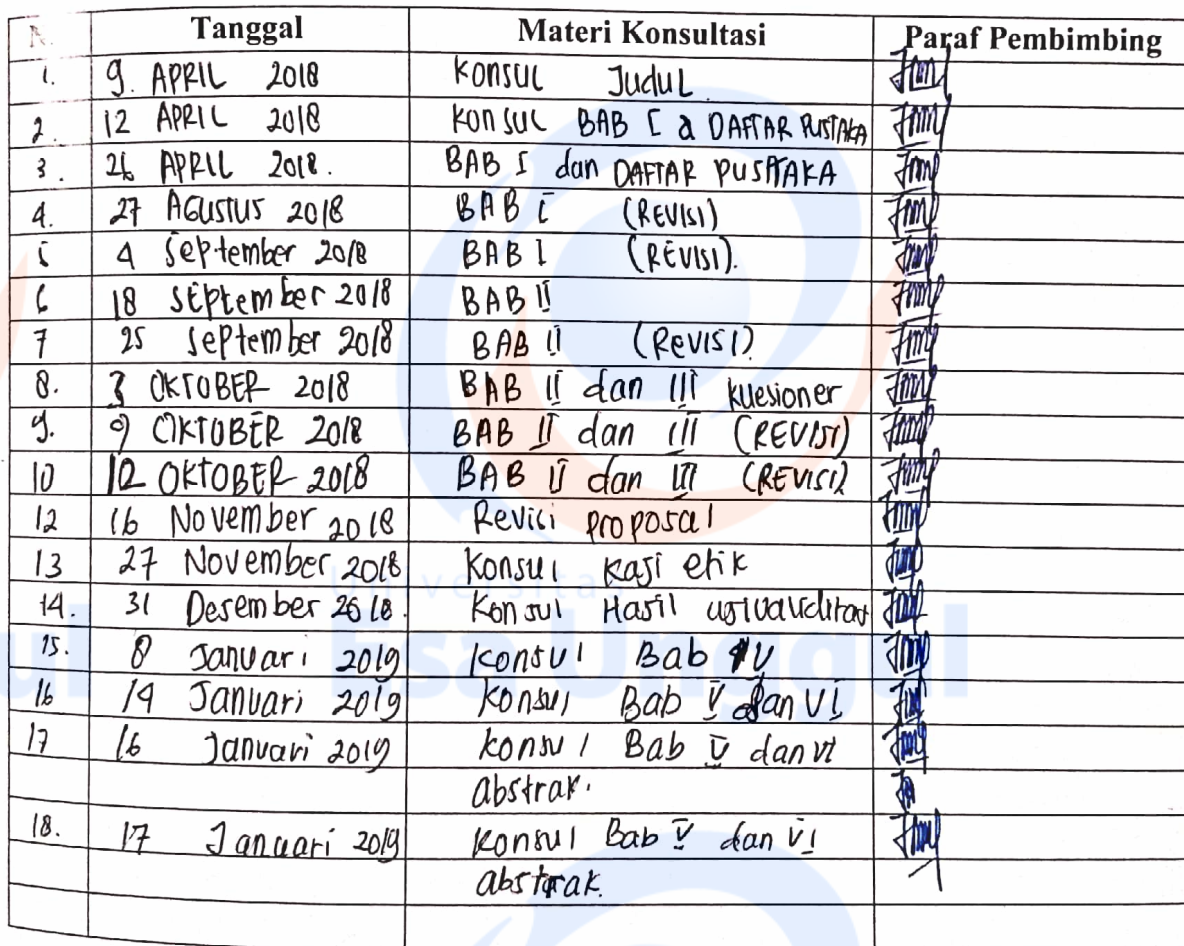 N. Tanggal Materi Konsultasi Paraf Pembimbing
1. 9. APRIL 2018 Konsul Judul.
2. 12 APRIL 2018 Konsul BAB I & DAFTAR PUSTAKA
3. 26 APRIL 2018. BAB I dan DAFTAR PUSTAKA
4. 27 AGUSTUS 2018 BAB I (REVISI)
5 4 September 2018 BAB I (REVISI).
6 18 September 2018 BAB II
7 25 September 2018 BAB II (Revisi)
8. 3 OKTOBER 2018 BAB II dan III kuesioner
9. 9 OKTOBER 2018 BAB II dan III (REVISI)
10 12 OKTOBER 2018 BAB II dan III (REVISI)
12 16 November 2018 Revisi proposal
13 27 November 2018 Konsul kaji etik
14. 31 Desember 2018. Konsul Hasil
15. 8 Januari 2019 Konsul Bab V
16 14 Januari 2019 Konsul Bab V dan VI
17 16 Januari 2019 Konsul Bab V dan VI
abstrak.
18. 17 Januari 2019 Konsul Bab V dan VI
abstrak.
Universitas
Esa Unggul
ul